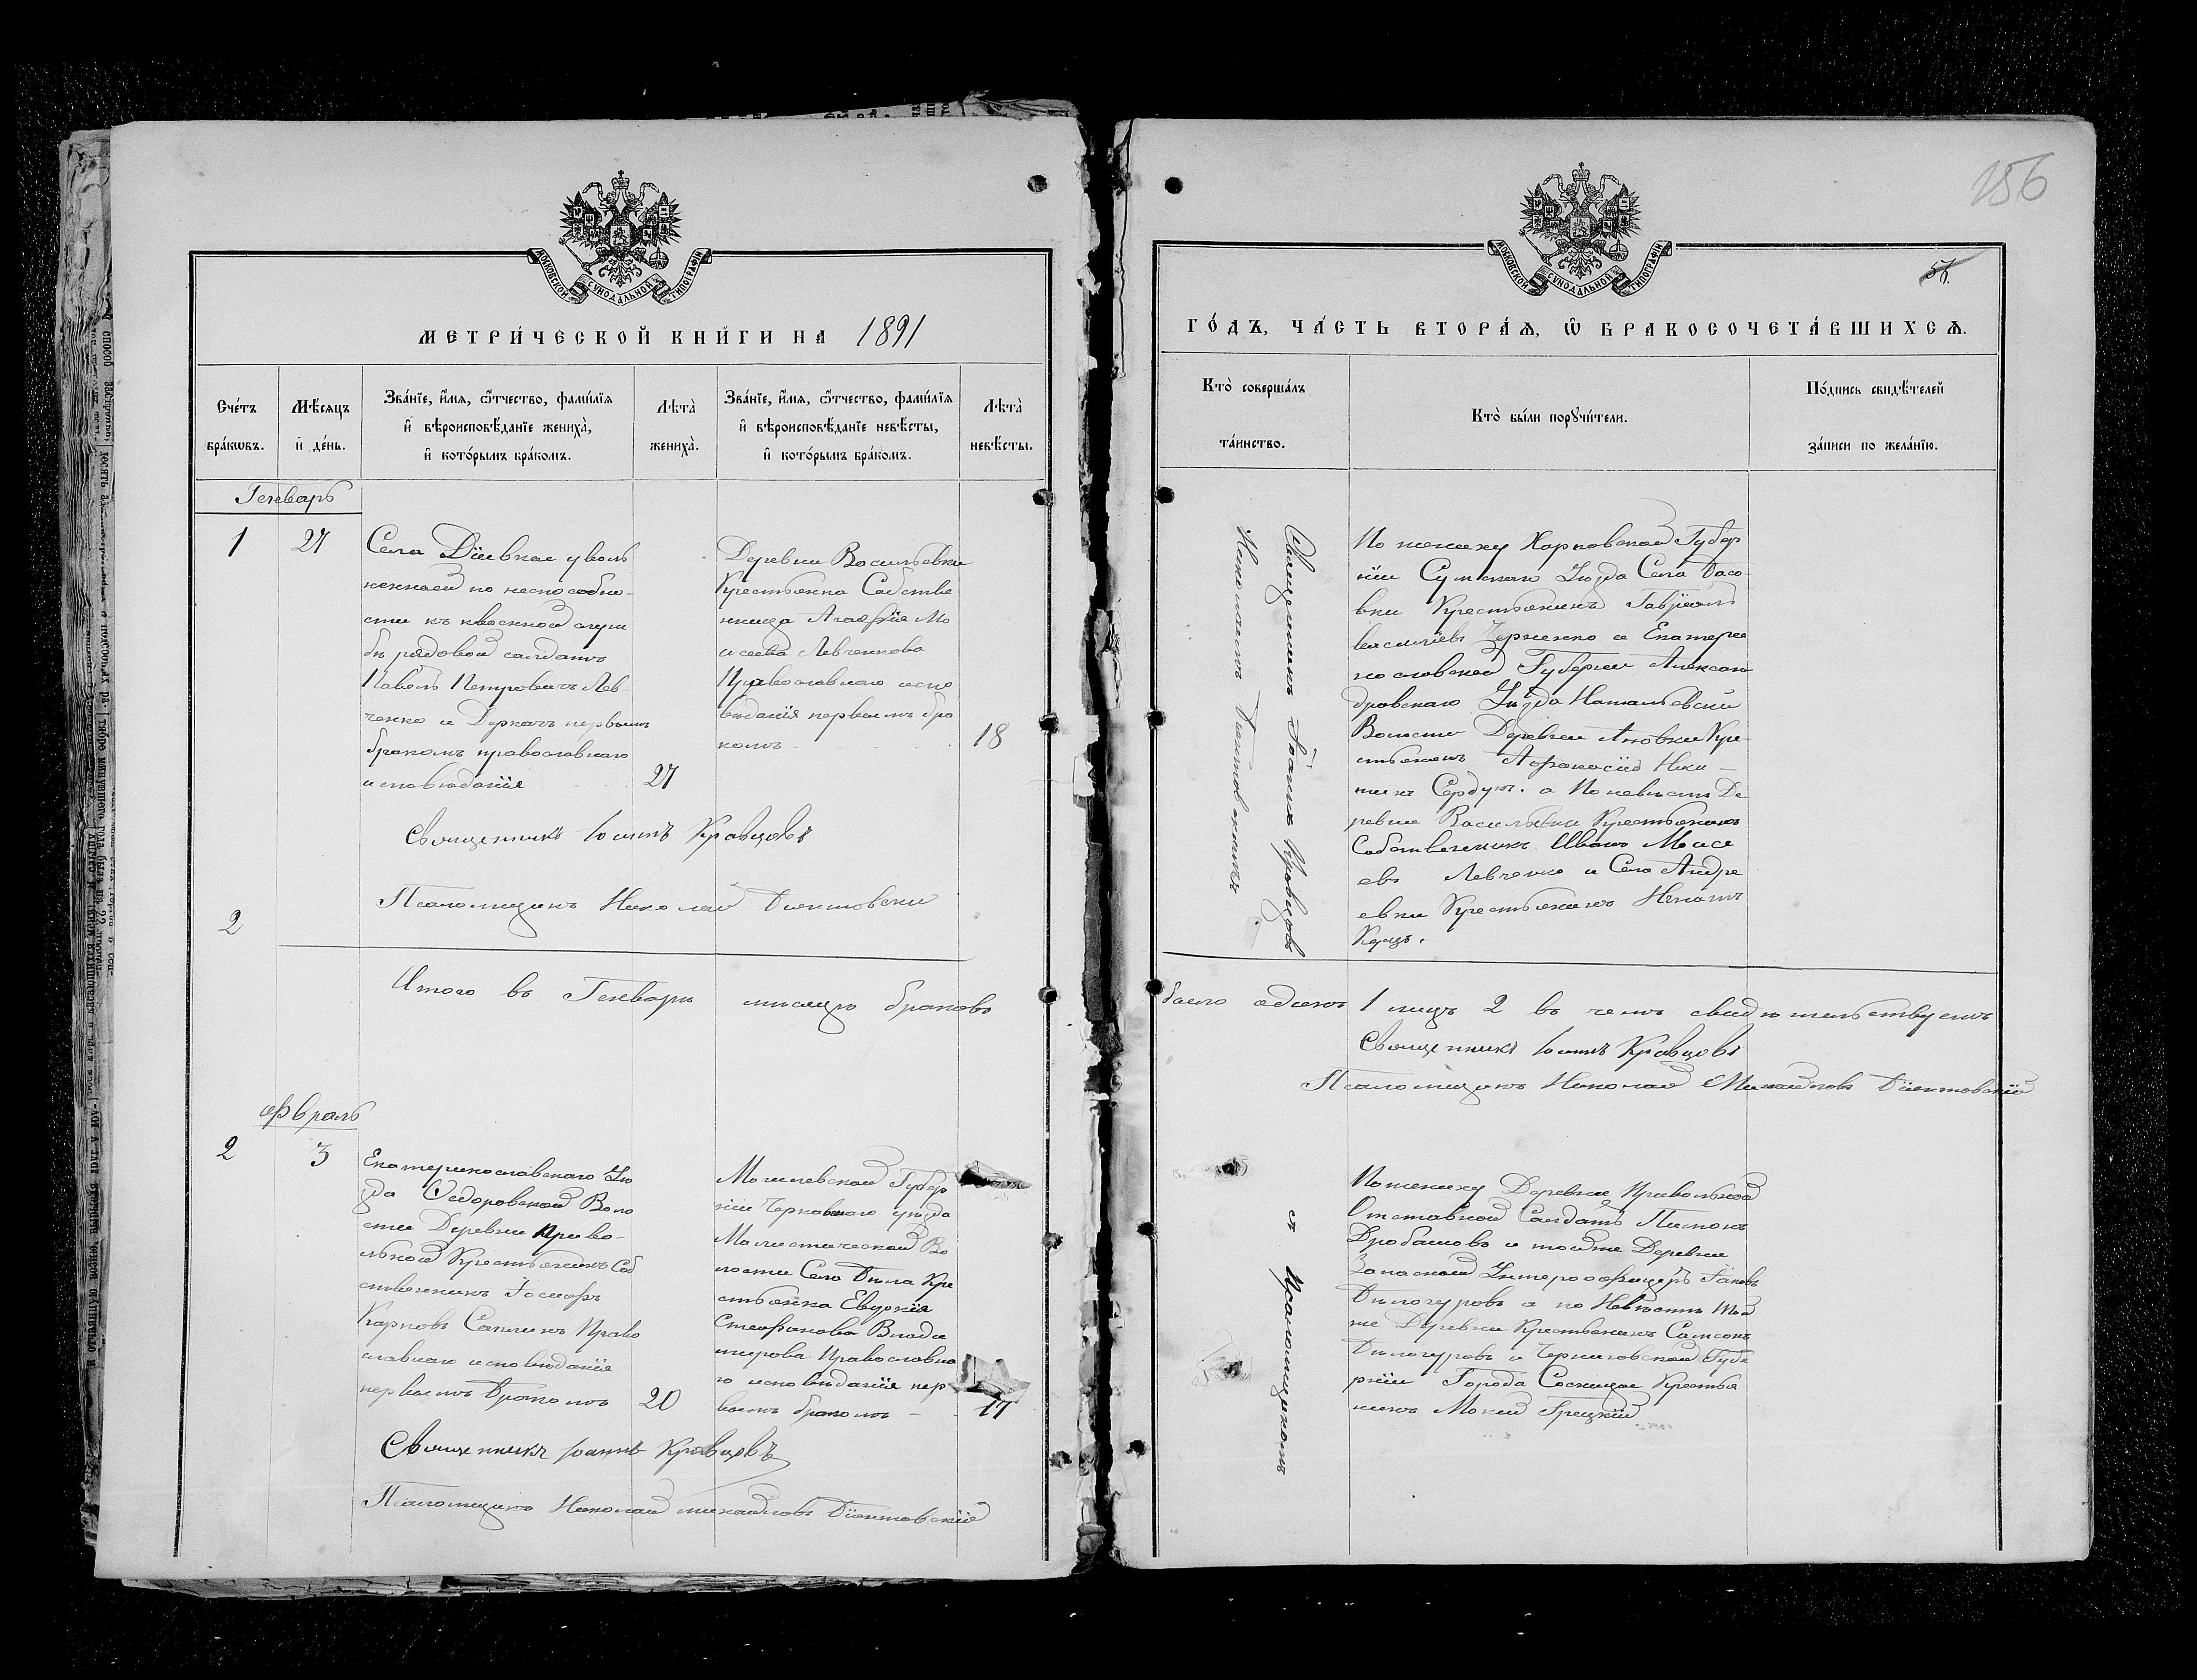 156
57.
МОСКОВСКОЙ СУНОДАЛЬНОЙ ТИПОГРАФІИ
МОСКОВСКОЙ СУНОДАЛЬНОЙ ТИПОГРАФІИ
МЕТРИ́ЧЕСКОЙ КНИ́ГИ НА 1891
Счéтъ
бра́кѡвъ.
Мѣ́сѧцъ
и҆ де́нь.
Зва́нїе, и҆́мѧ, ѻ҆́тчество, фами́лїѧ
и҆ вѣроисповѣ́данїе жениха̀,
и҆ кото́рымъ бра́комъ.
Лѣта̀
жениха̀.
Зва́нїе, и҆́мѧ, ѻ҆́тчество, фами́лїѧ
и҆ вѣроисповѣ́данїе невѣ́сты,
и҆ кото́рымъ бра́комъ.
Лѣта̀
невѣ́сты.
Генварь
1
27
Села Діевкае уволь
неннаей по неспособно-
сти къ военной служ
бѣ рядовой салдатъ
Павелъ Петровичъ Лев
ченко и Деркачъ первымъ
бракомъ православнаго
исповѣданія
27
Деревни Васильевки
Крестьянка Собстве
нница Агафія Мо
исеева Левченкова
Православнаго испо
веданія первымъ бра
комъ
18
Священникъ Іоаннъ Кравцовъ
Псаломщикъ Николай
2
Итого въ Генварѣ мѣсяцѣ браковъ
Февраль
2
3
Екатеринославскаго Уѣ
зда Федоровской Воло
сти Деревни Приво-
льной Крестьянинъ Соб
ственникъ Іосифъ
Карповъ Право
славнаго исповѣданія
первымъ Бракомъ
20
Могилевской Губер
ніи уѣзда
Во
лости Села Кре
стьянка Евдокія
Стефанова Влади
мирова Православна
го исповѣданія пер
вымъ бракомъ
17
Священникъ Іоаннъ Кравцовъ
Псаломщикъ Николай Михаиловъ
ГО́ДЪ, ЧА́СТЬ ВТОРА́Ѧ, Ѡ҆ БРАКОСОЧЕТА́ВШИХСѦ.
Кто̀ соверша́лъ
та́инство.
Кто̀ бы́ли порꙋчи́тели.
По́дпись свидѣ́телей
за́писи по жела́нїю.
Священникъ Іоаннъ Кравцовъ
Николаемъ
По жениху Харковской Губер
ніи Сумскаго Уѣзда Села Басо
вки Крестьянинъ Гавріилъ
Васильевъ и Екатери
нославской Губерніи Алексан
дровскаго Уѣзда Натальевской
Волости Деревни Ановки Кре
стьянинъ Афанасій Ники
тинъ Сердукъ. а По невѣсти Де
ревни Васильевки Крестьянинъ
Собственникъ Иванъ Моисе
евъ Левченко и Села Андре
евки Крестьянинъ Игнатъ
было одинъ 1 лицъ 2 въ чемъ свидѣтельствуемъ
Священникъ Іоаннъ Кравцовъ
Псаломщикъ Николай Михаиловъ
съ Псаломщикомъ
По жениху Деревни Привольной
Отставной Салдатъ Пименъ
и тойже Деревни
Запасной Унтерофицеръ Іаковъ
Бѣлогуровъ а по Невѣсти той
же Деревни Крестьянинъ Самсонъ
Бѣлогуровъ и Черниговской Губе
рніи Города Сосницы Крестья
нинъ Мокий Грецкій